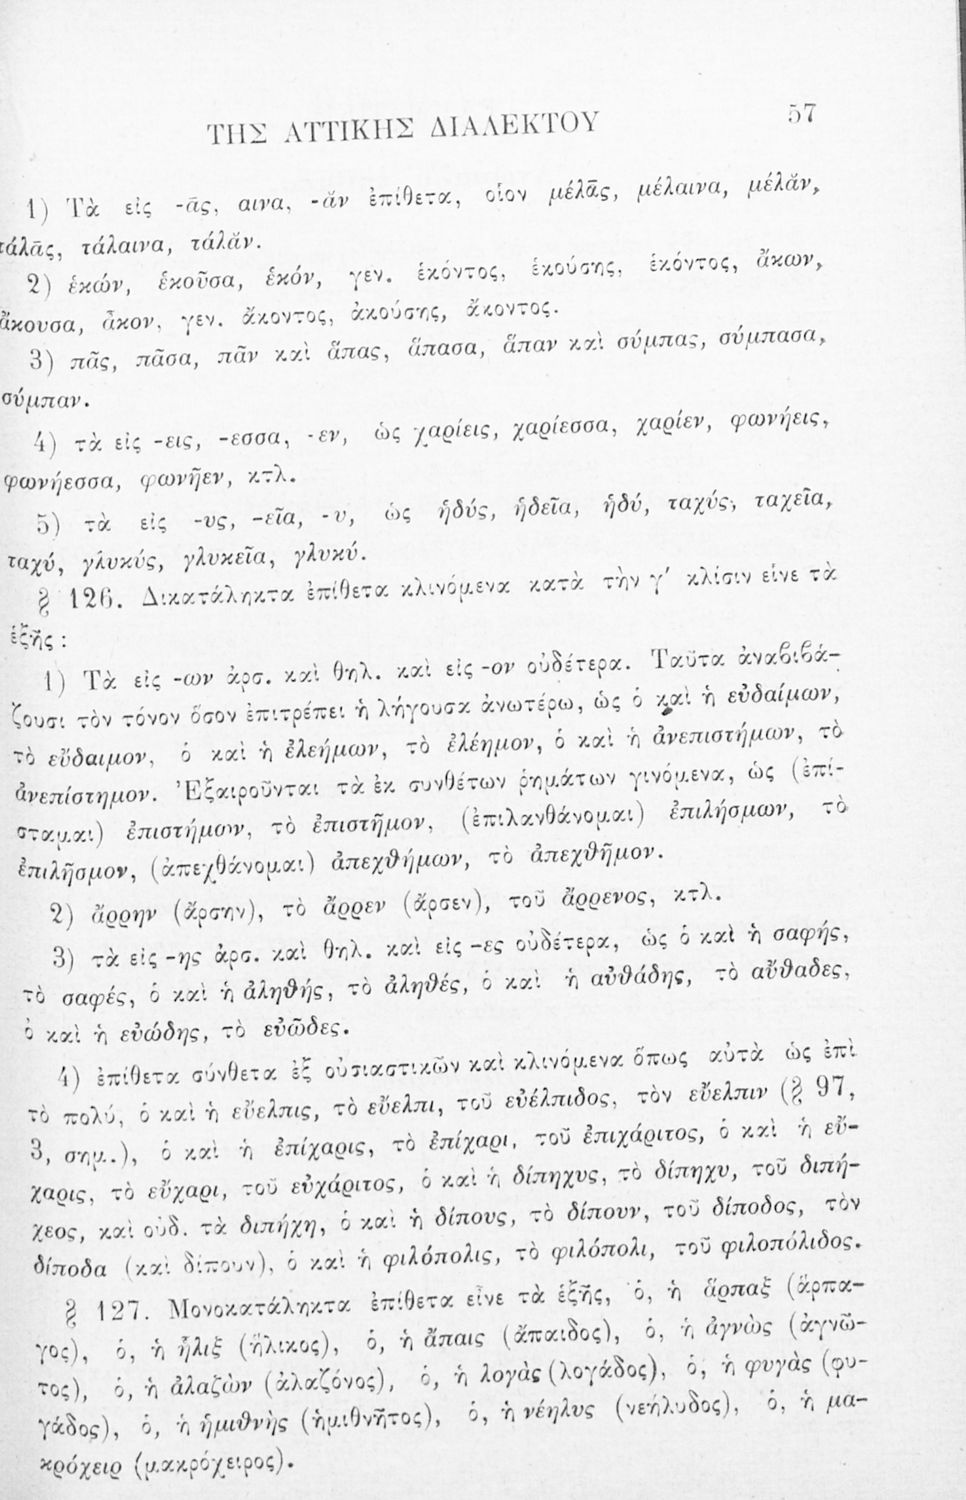 ΤΗΣ ΑΤΤΙΚΗΣ ΔΙΑΛΕΚΤΟΥ 57
1) Τὰ εἰς -ᾱς, αινα, -ᾰν ἐπίθετα, οἷον μέλᾱς, μέλαινα, μέλᾰν,
τάλᾱς, τάλαινα, τάλᾰν.
2) ἑκών, ἑκοῦσα, ἑκόν, γεν. ἑκόντος, ἑκούσης, ἑκόντος, ἄκων,
ἄκουσα, ἆκον, γεν. ἄκοντος, ἀκούσης, ἄκοντος.
3) πᾶς, πᾶσα, πᾶν καὶ ἅπας, ἅπασα, ἅπαν καὶ σύμπας, σύμπασα,
σύμπαν.
4) τὰ εἰς -εις, -εσσα, -εν, ὡς χαρίεις, χαρίεσσα, χαρίεν, φωνήεις,
φωνήεσσα, φωνῆεν, κτλ.
5) τὰ εἰς -υς, -εῖα, -υ, ὡς ἡδύς, ἡδεῖα, ἡδύ, ταχύς, ταχεῖα,
ταχύ, γλυκύς, γλυκεῖα, γλυκύ.
§ 126. Δικατάληκτα ἐπίθετα κλινόμενα κατὰ τὴν γ′ κλίσιν εἶνε τὰ
ἑξῆς :
1) Τὰ εἰς -ων ἀρσ. καὶ θηλ. καὶ εἰς -ον οὐδέτερα. Ταῦτα ἀναβιβά-
ζουσι τὸν τόνον ὅσον ἐπιτρέπει ἡ λήγουσα ἀνωτέρω, ὡς ὁ καὶ ἡ εὐδαίμων,
τὸ εὔδαιμον, ὁ καὶ ἡ ἐλεήμων, τὸ ἐλέημον, ὁ καὶ ἡ ἀνεπιστήμων, τὸ
ἀνεπίστημον. Ἐξαιροῦνται τὰ ἐκ συνθέτων ῥημάτων γινόμενα, ὡς (ἐπί-
σταμαι) ἐπιστήμων, τὸ ἐπιστῆμον, (ἐπιλανθάνομαι) ἐπιλήσμων, τὸ
ἐπιλῆσμον, (ἀπεχθάνομαι) ἀπεχθήμων, τὸ ἀπεχθῆμον.
2) ἄρρην (ἄρσην), τὸ ἄρρεν (ἄρσεν), τοῦ ἄρρενος, κτλ.
3) τὰ εἰς -ης ἀρσ. καὶ θηλ. καὶ εἰς -ες οὐδέτερα, ὡς ὁ καὶ ἡ σαφής,
τὸ σαφές, ὁ καὶ ἡ ἀληθής, τὸ ἀληθές, ὁ καὶ ἡ αὐθάδης, τὸ αὔθαδες,
ὁ καὶ ἡ εὐώδης, τὸ εὐῶδες.
4) ἐπίθετα σύνθετα ἐξ οὐσιαστικῶν καὶ κλινόμενα ὅπως αὐτὰ ὡς ἐπὶ
τὸ πολύ, ὁ καὶ ἡ εὔελπις, τὸ εὔελπι, τοῦ εὐέλπιδος, τὸν εὔελπιν (§ 97,
3, σημ.), ὁ καὶ ἡ ἐπίχαρις, τὸ ἐπίχαρι, τοῦ ἐπιχάριτος, ὁ καὶ ἡ εὔ-
χαρις, τὸ εὔχαρι, τοῦ εὐχάριτος, ὁ καὶ ἡ δίπηχυς, τὸ δίπηχυ, τοῦ διπή-
χεος, καὶ οὐδ. τὰ διπήχη, ὁ καὶ ἡ δίπους, τὸ δίπουν, τοῦ δίποδος, τὸν
δίποδα (καὶ δίπουν), ὁ καὶ ἡ φιλόπολις, τὸ φιλόπολι, τοῦ φιλοπόλιδος.
§ 127. Μονοκατάληκτα ἐπίθετα εἶνε τὰ ἑξῆς, ὁ, ἡ ἅρπαξ (ἅρπα-
γος), ὁ, ἡ ἧλιξ (ἥλικος), ὁ, ἡ ἄπαις (ἄπαιδος), ὁ, ἡ ἀγνὼς (ἀγνῶ-
τος), ὁ, ἡ ἀλαζὼν (ἀλαζόνος), ὁ, ἡ λογὰς (λογάδος), ὁ, ἡ φυγὰς (φυ-
γάδος), ὁ, ἡ ἡμιθνὴς (ἡμιθνῆτος), ὁ, ἡ νέηλυς (νεήλυδος), ὁ, ἡ μα-
κρόχειρ (μακρόχειρος).